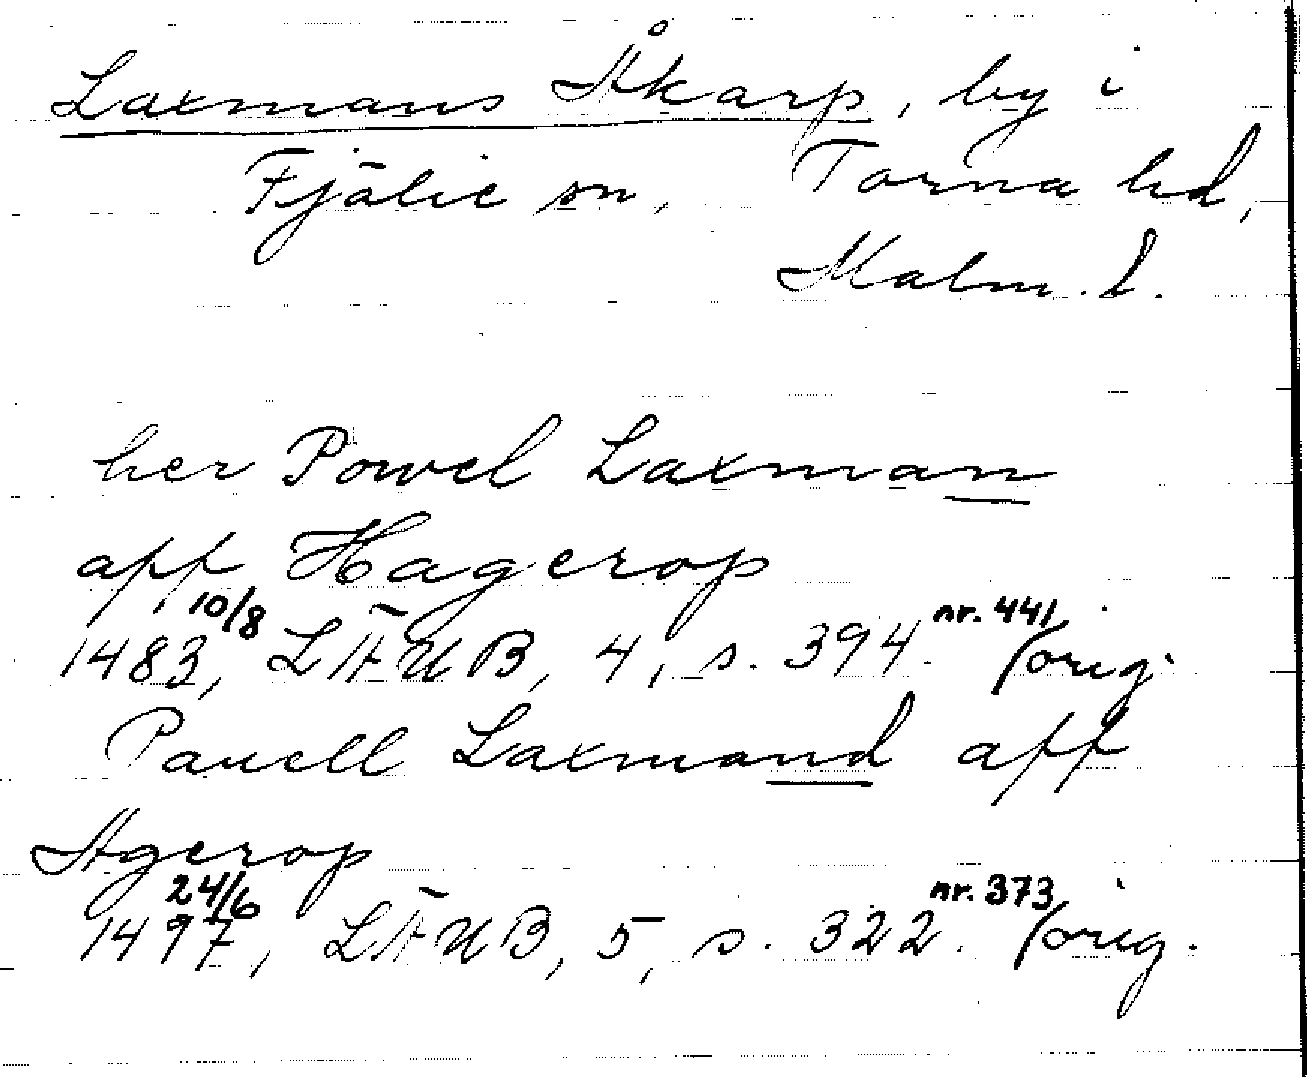 Laxmans Åkarp, by i
Fjälie sn, Torna hd,
Malm. l.
her Powel Laxman
aff Hagerop
1483, 10/8 LÄUB, 4, s. 394. nr. 441 /orig.
Pauell Laxmand aff
Agerop
1497, 24/6 LÄUB, 5, s. 322. nr. 373 /orig.